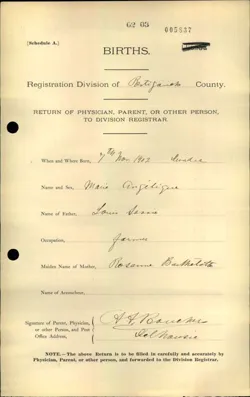 62 05 005337
[Schedule A.]
BIRTHS.
Registration Division of Restigouche County.
RETURN OF PHYSICIAN, PARENT, OR OTHER PERSON,
TO DIVISION REGISTRAR.
When and Where Born, 7th Nov 1902
Name and Sex, Marie Angélique
Name of Father, Louis
Occupation, farmer
Maiden Name of Mother, Rosanne
Name of Accoucheur,
Signature of Parent, Physician,
or other Person, and Post
Office Address,
Dalhousie
NOTE.—The above Return is to be filled in carefully and accurately by
Physician, Parent, or other person, and forwarded to the Division Registrar.